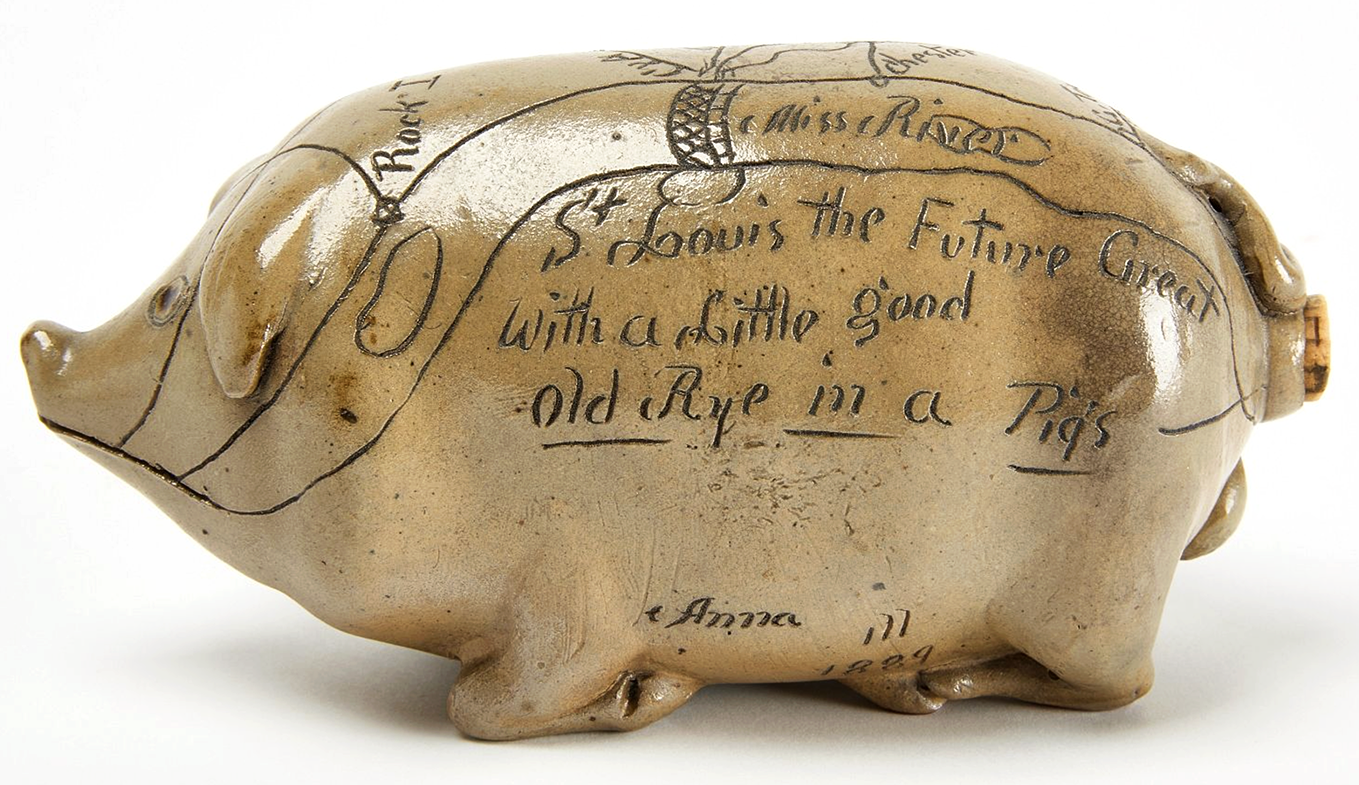 Rock I
Chester
Miss River
St Louis the Future Great
With a Little good
old Rye in a Pigs
Anna Ill
1889